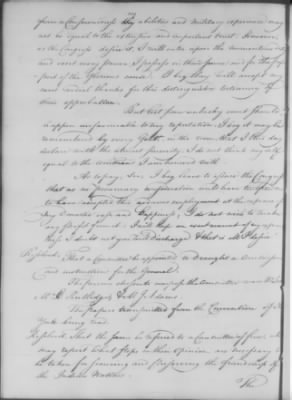 from a Consciousness my abilities and military experience may
not be equal to the extensive and important trust. However,
as the Congress desire it, I will enter upon the momentous duty
and exert every power I possess in their service and for the sup-
port of the Glorious cause. I beg they will accept my
most cordial thanks for this distinguished testimony of
their approbation.
But lest some unlucky event should
happen unfavourable to my reputation, I beg it may be
remembered by every Gentn. in the room that I this day
declare with the utmost sincerity, I do not think myself
equal to the command I am honored with.
As to pay, Sir, I beg leave to assure the Congress
that as no pecuniary consideration could have tempted me
to have accepted this arduous employment at the expence of
my Domestic ease and happiness, I do not wish to make
any profit from it. I will keep an exact account of my expences
those I doubt not you will Discharge & that is all I desire
Resolved, That a Committee be appointed to draught a Commission
and instructions for the General.
The persons chosen to compose the Committee were Mr. Lee
Mr. E. Rutledge & Mr. J. Adams.
The Papers transmitted from the Convention of New
York being read.
Resolved That the same be referred to a Committee of five, who
may report what steps in their Opinion are necessary to
be taken for securing and preserving the friendship of
the Indian Nations.
The